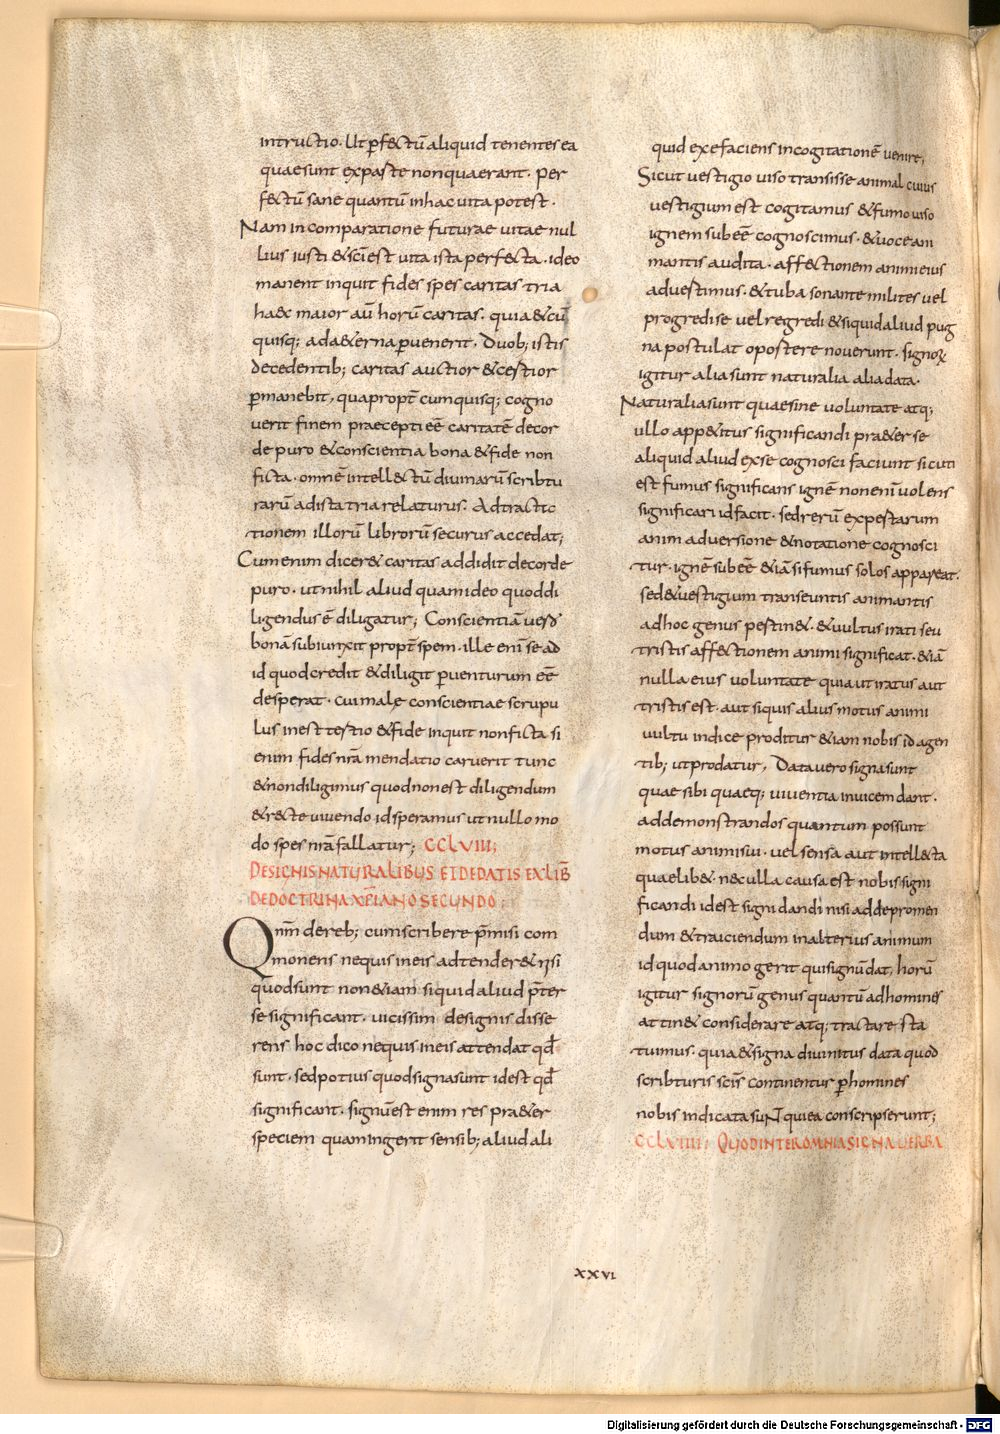 intructio· Ut ꝑfectū aliquid tenentes ea
quae sunt ex paste non quaerant· per
fectū sane quantū in hac uita potest·
Nam in comparatione futurae uitae nul
lius iusti & sc̄i est uita ista perfecta· ideo
manent inquit fides spes caritas tria
haec maior au̅ horū caritas· quia & cū
quisq; ad aeterna ꝑuenerit· Duob; istis
decedentib; caritas auctior & cestior
ꝑmanebit, quapropt̄ cum quisq; cogno
uerit finem praecepti eē caritatē decor
de puro & conscientia bona & fide non
ficta· omnē intellectū diuinarū scribtu
rarū ad ista tria relaturus· Ad tractic
tionem illorū librorū securus accedat;
Cum enim diceret caritas addidit decorde
puro· ut nihil aliud quam ideo quod di
ligendus ē diligatur; Conscientiā
bonā subiunxit propt̄ spem· ille enī se ad
id quod credit & diligit ꝑuenturum eē
desperat· cui male conscientiae scrupu
lus inest tertio & fide inquit non ficta si
enim fides nr̄a mendatio caruerit tunc
& non diligimus quod non est diligendum
& recte uiuendo id speramus ut nullo mo
do spes nr̄a fallatur; CCLVIII;
DE SIGNIS NATURALIBUS ET DE DATIS EX LIB̄
DE DOCTRINA XP̄IANO SECUNDO;
Qnm̄ dereb; cum scribere p̄misi com
monens nequis in eis adtenderet nisi
quod sunt non etiam siquid aliud p̄ter
se significant· uicissim de signis disse
rens hoc dico nequis in eis attendat qd̄
sunt· sed potius quod signa sunt id est qd̄
significant· signū est enim res praeter
speciem quam ingerit sensib; aliud ali
quid ex se faciens in cogitationē uenire,
Sicut uestigio uiso transisse animal cuius
uestigium est cogitamus & fumo uiso
ignem subeē cognoscimus· & uoce ani
mantis audita· affectionem animi eius
aduestimus· & tuba sonante milites uel
progredi se uel regredi & siquid aliud pug
na postulat opostere nouerunt· signoꝝ
igitur alia sunt naturalia alia data·
Naturalia sunt quae sine uoluntate atq;
ullo appetitus significandi praeter se
aliquid aliud ex se cognosci faciunt sicuti
est fumus significans ignē non enī uolens
significari id facit· sed rerū expestarum
anim aduersione & notatione cognosci
tur· ignē subeē & iā si fumus solos appareat·
sed & uestigium transeuntis animantis
ad hoc genus pestinet· & uultus irati seu
tristis affectionem animi significat· & iā
nulla eius uoluntate qui aut iratus aut
tristis est· aut siquis alius motus animi
uultu indice proditur & iam nobis id agen
tib; ut prodatur, Data uero signa sunt
quae sibi quaeq; uiuentia inuicem dant·
ad demonstrandos quantum possunt
motus animi sui· uel sensa aut intellecta
quaelibet· nec ulla causa est nobis signi
ficandi id est signi dandi nisi ad depromen
dum & traiciendum in alterius animum
id quod animo gerit qui signū dat, horū
igitur signorū genus quantū ad homines
attinet considerare atq; tractare sta
tuimus· quia & signa diuinitus data quod
scribturis sc̄is continentur ꝑ homines
nobis indicata suNt qui ea conscripserunt;
CCLVIIII; QUOD INTER OMNIA SIGNA UERBA
XXVI
Digitalisierung gefördert durch die Deutsche Forschungsgemeinschaft - DFG